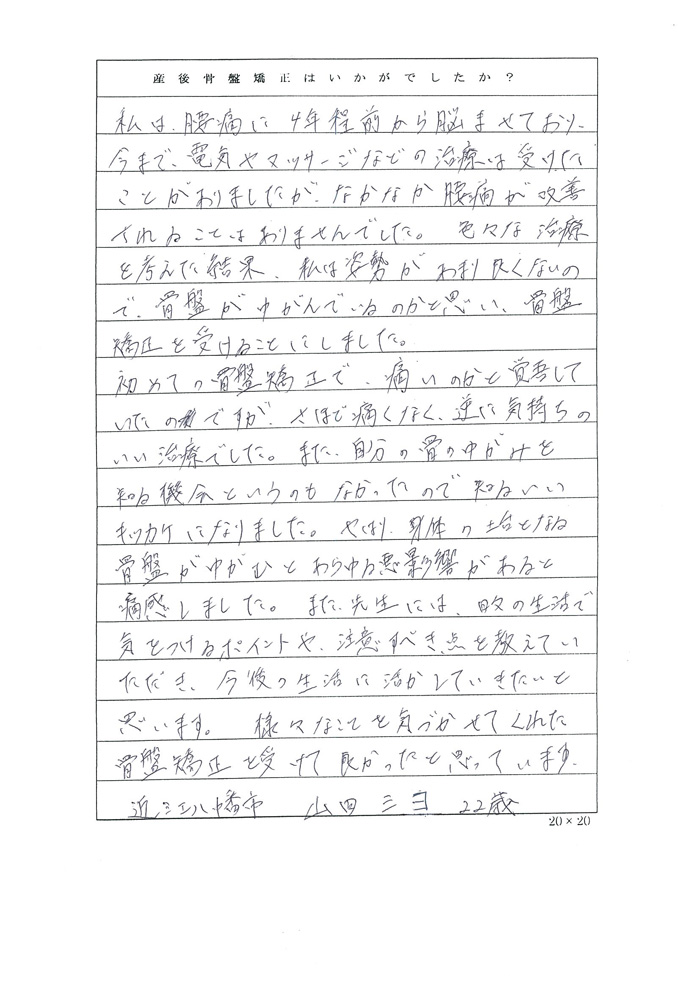 産後骨盤矯正はいかがでしたか？
私は、腰痛に4年程前から脳ませており、
今まで、電気やマッサージなどの治療は受けた
ことがありましたが、なかなか腰痛が改善
されることはありませんでした。 色々な治療
を考えた結果、私は姿勢があまり良くないの
で、骨盤がゆがんでいるのかと思い、骨盤
矯正を受けることにしました。
初めての骨盤矯正で、痛いのかと覚吾して
いたのですが、さほど痛くなく、逆に気持ちの
いい治療でした。また、自分の骨のゆがみを
知る機会というのもなかったので知るいい
キッカケになりました。やはり、身体の土台となる
骨盤がゆがむとあらゆる悪影響があると
痛感しました。 また、先生には、日々の生活で
気をつけるポイントや、注意すべき点を教えてい
ただき、今後の生活に活かしていきたいと
思います。 様々なことを気づかせてくれた
骨盤矯正を受けて良かったと思っています。
近江八幡市 山田 三ヨ 22歳
20×20